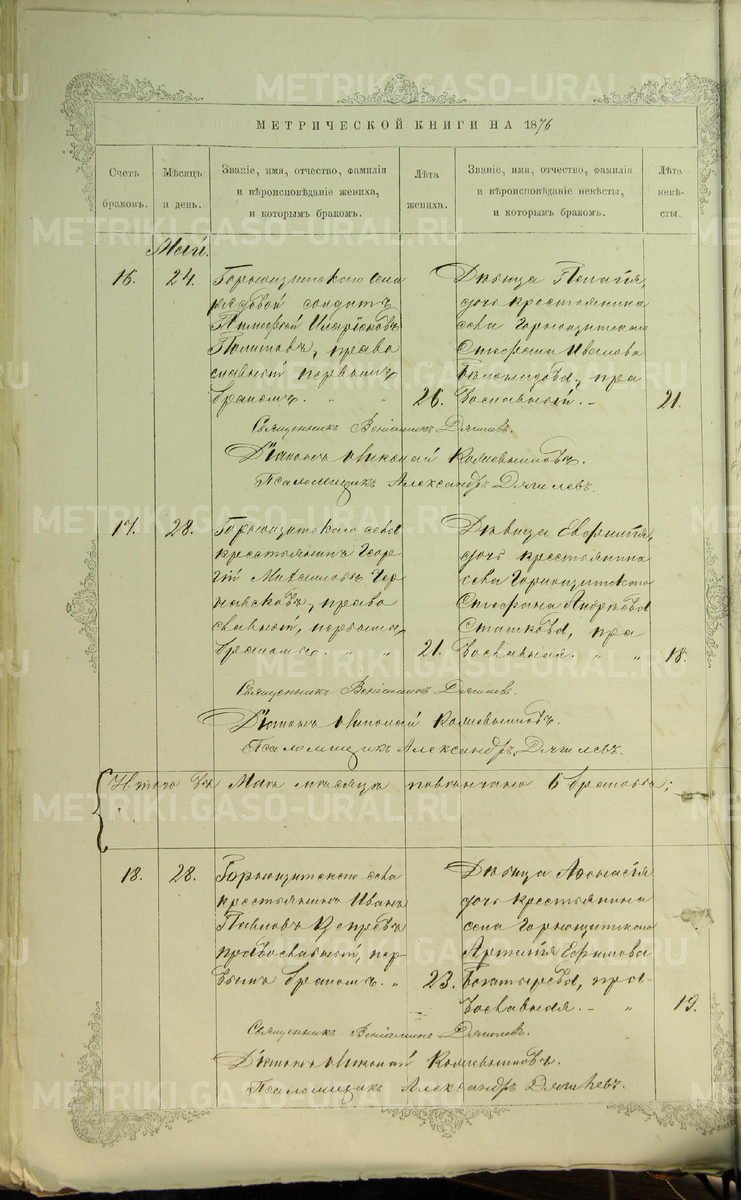 METRIKI.GASO-URAL.RU
МЕТРИЧЕСКОЙ КНИГИ НА 1876
Счетъ браковъ.
Мѣсяцъ и день.
Званіе, имя, отчество, фамилія
и вѣроисповѣданіе жениха,
и которымъ бракомъ.
Лѣта жениха.
Званіе, имя, отчество, фамилія
и вѣроисповѣданіе невѣсты,
и которымъ бракомъ.
Лѣта невѣ-
сты.
Май.
16.
24.
Горнощитского села
рядовой солдатъ
Тимофей Иларіоновъ
православный первымъ
бракомъ. „ „
26.
Дѣвица Пелагія,
дочь крестьянина
села Горнощитского
Стефана Иванова
пра
вославный. –
21.
Священникъ Веніаминъ Дягилевъ.
Діаконъ Николай
Псаломщикъ Александръ Дягилевъ.
17.
28.
Горнощитского села
крестьянинъ Геор
гій Михаиловъ Чер
навсковъ, право
славный, первымъ
бракомъ. „ „
21.
Дѣвица Евфимія,
дочь крестьянина
села Горнощитского
Стефана Андреева
пра
вославная. „ „
18.
Священникъ Веніаминъ Дягилевъ.
Діаконъ Николай
Псаломщикъ Александръ Дягилевъ.
Итого въ Маѣ мѣсяцѣ повѣнчано 6 браковъ;
18.
28.
Горнощитского села
крестьянинъ Иванъ
Павловъ
православный, пер
вымъ бракомъ. „
23.
Дѣвица Афанасія
дочь крестьянина
села Горнощитского
Артемія Ефимова
Богатырева, пра-
вославная. – „
19.
Священникъ Веніаминъ Дягилевъ.
Діаконъ Николай
Псаломщикъ Александръ Дягилевъ.